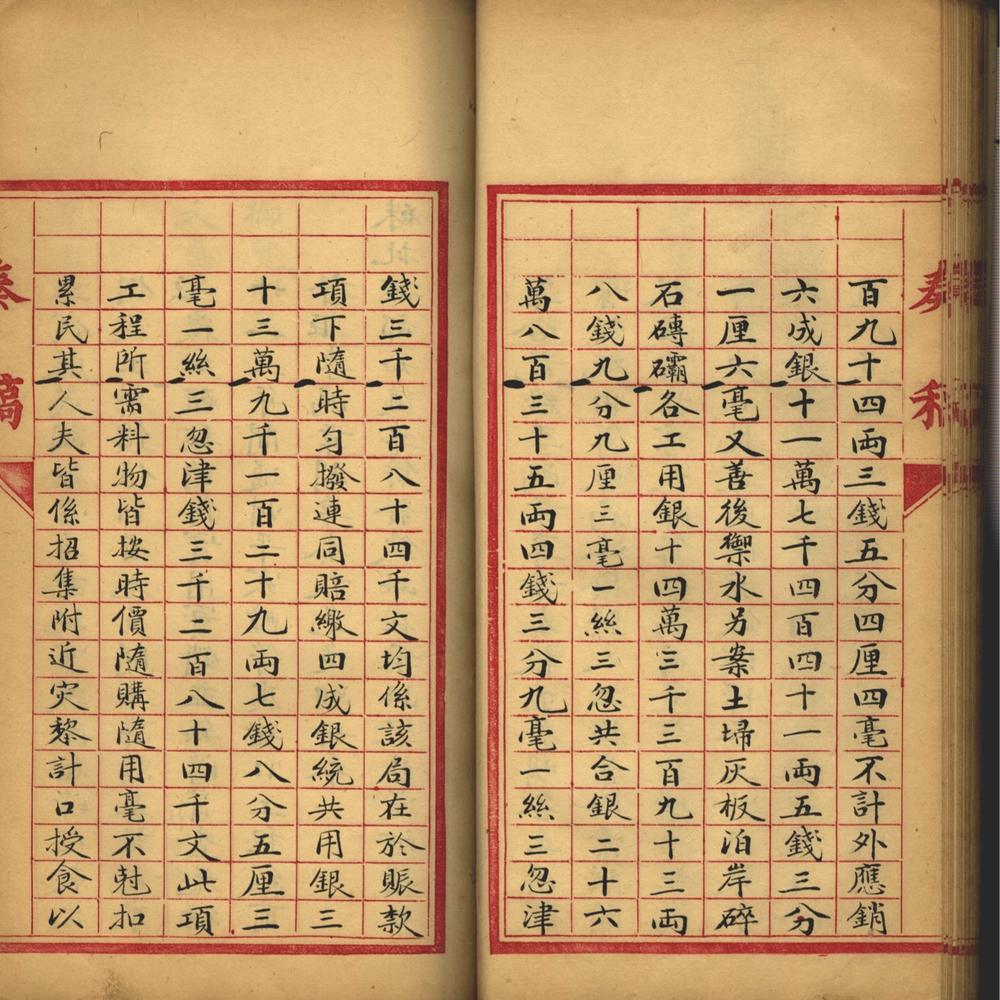 百九十四両三錢五分四厘四毫不計外應銷
六成銀十一萬七千四百四十一両五錢三分
一厘六毫又善後禦水另案土埽灰板泊岸碎
石磚壩各工用銀十四萬三千三百九十三両
八錢九分九厘三毫一絲三忽共合銀二十六
萬八百三十五両四錢三分九毫一絲三忽津
錢三千二百八十四千文均係該局在於賑款
項下隨時勻撥連同賠繳四成銀統共用銀三
十三萬九千一百二十九両七錢八分五厘三
毫一絲三忽津錢三千二百八十四千文此項
工程所需料物皆按時價隨購隨用毫不尅扣
累民其人夫皆係招集附近灾黎計口授食以
奏稿